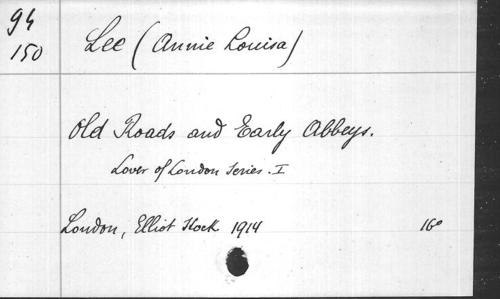 94
150
Lee (Annie Louisa)
Old Roads and Early Abbeys.
Lover of London Series. I
London, Elliot Stock 1914 16º